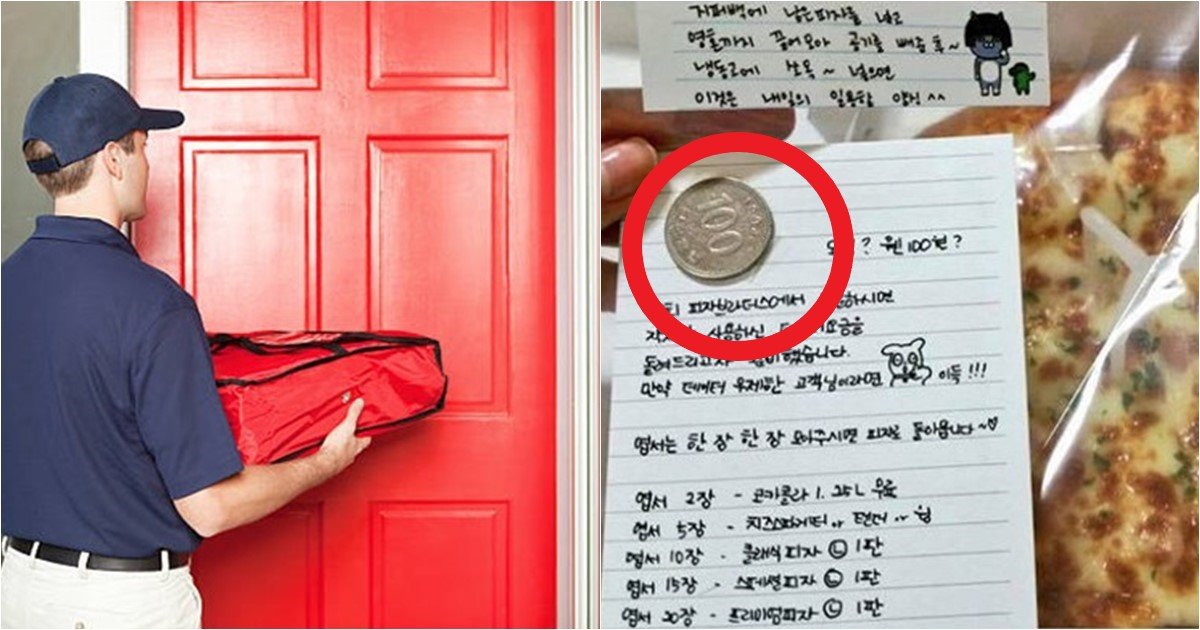 지퍼백에 남은피자를 넣고
영혼까지 끌어모아 공기를 빼준후~
냉동고에 쏘옥~ 넣으면
이것은 내일의 일용할 양식 ^^
100
? 웬 100원?
피자브라더스에서 하시면
사용하신
돌려드리고자 준비했습니다.
만약 데이터 무제한 고객님이라면 이득!!!
엽서는 한 장 한 장 모아주시면 피자로 돌아옵니다~♡
엽서 2장 - 코카콜라 1.25L 무료
엽서 5장 - 치즈스파게티 or 텐더 or 윙
엽서 10장 - 클래식피자 Ⓛ 1판
엽서 15장 - 스페셜피자 Ⓛ 1판
엽서 20장 - 프리미엄피자 Ⓛ 1판